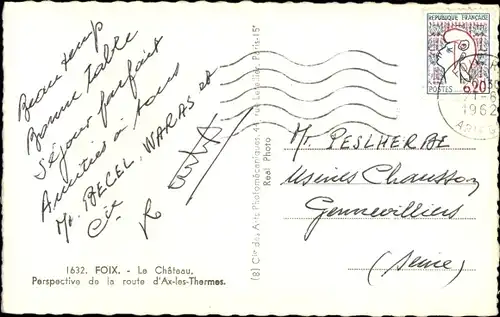 Beau temp
Bonne table
Séjour parfait
Amitiés à tous
Mr BECEL WARAS et
Cie
1632. FOIX. - Le Château.
Perspective de la route d'Ax-les-Thermes.
(8) Cie des Arts Photomécaniques, 44, rue Letellier, Paris-15e
Real Photo
REPUBLIQUE FRANÇAISE
POSTES 0,20
1962
Mr PESLHERBE
Usines Chausson
Gennevilliers
(Seine)